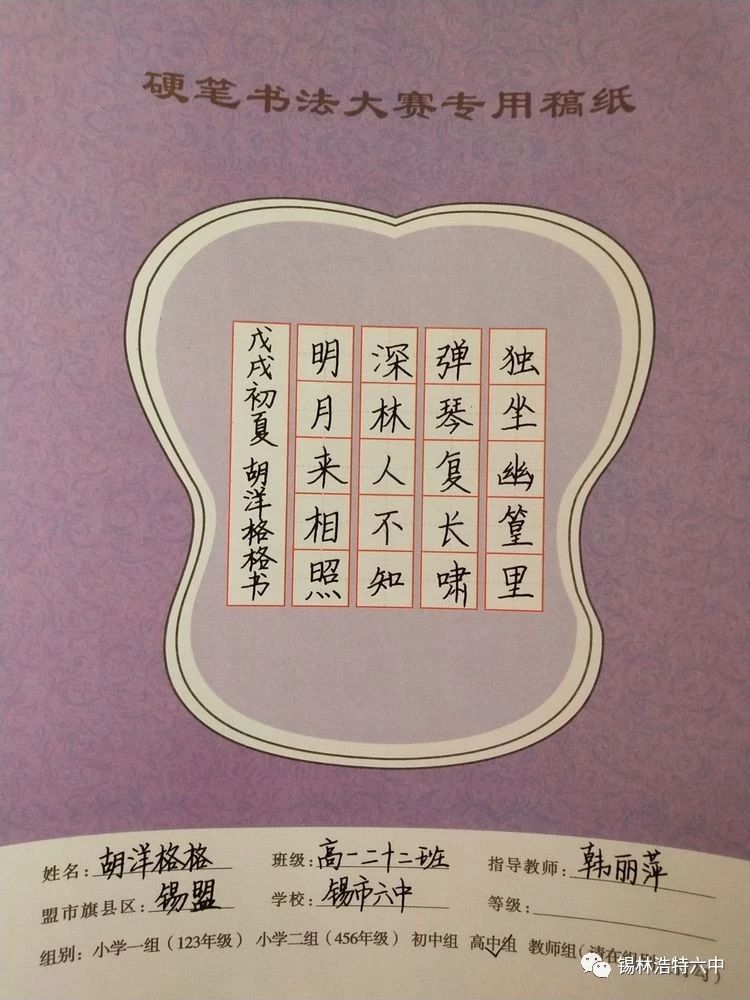 硬笔书法大赛专用稿纸
独坐幽篁里
弹琴复长啸
深林人不知
明月来相照
戊戌初夏 胡洋格格书
姓名：胡洋格格 班级：高一二十二班 指导教师：韩丽萍
盟市旗县区：锡盟 学校：锡市六中 等级：
组别：小学一组（123年级） 小学二组（456年级） 初中组 高中组 教师组（请在
锡林浩特六中